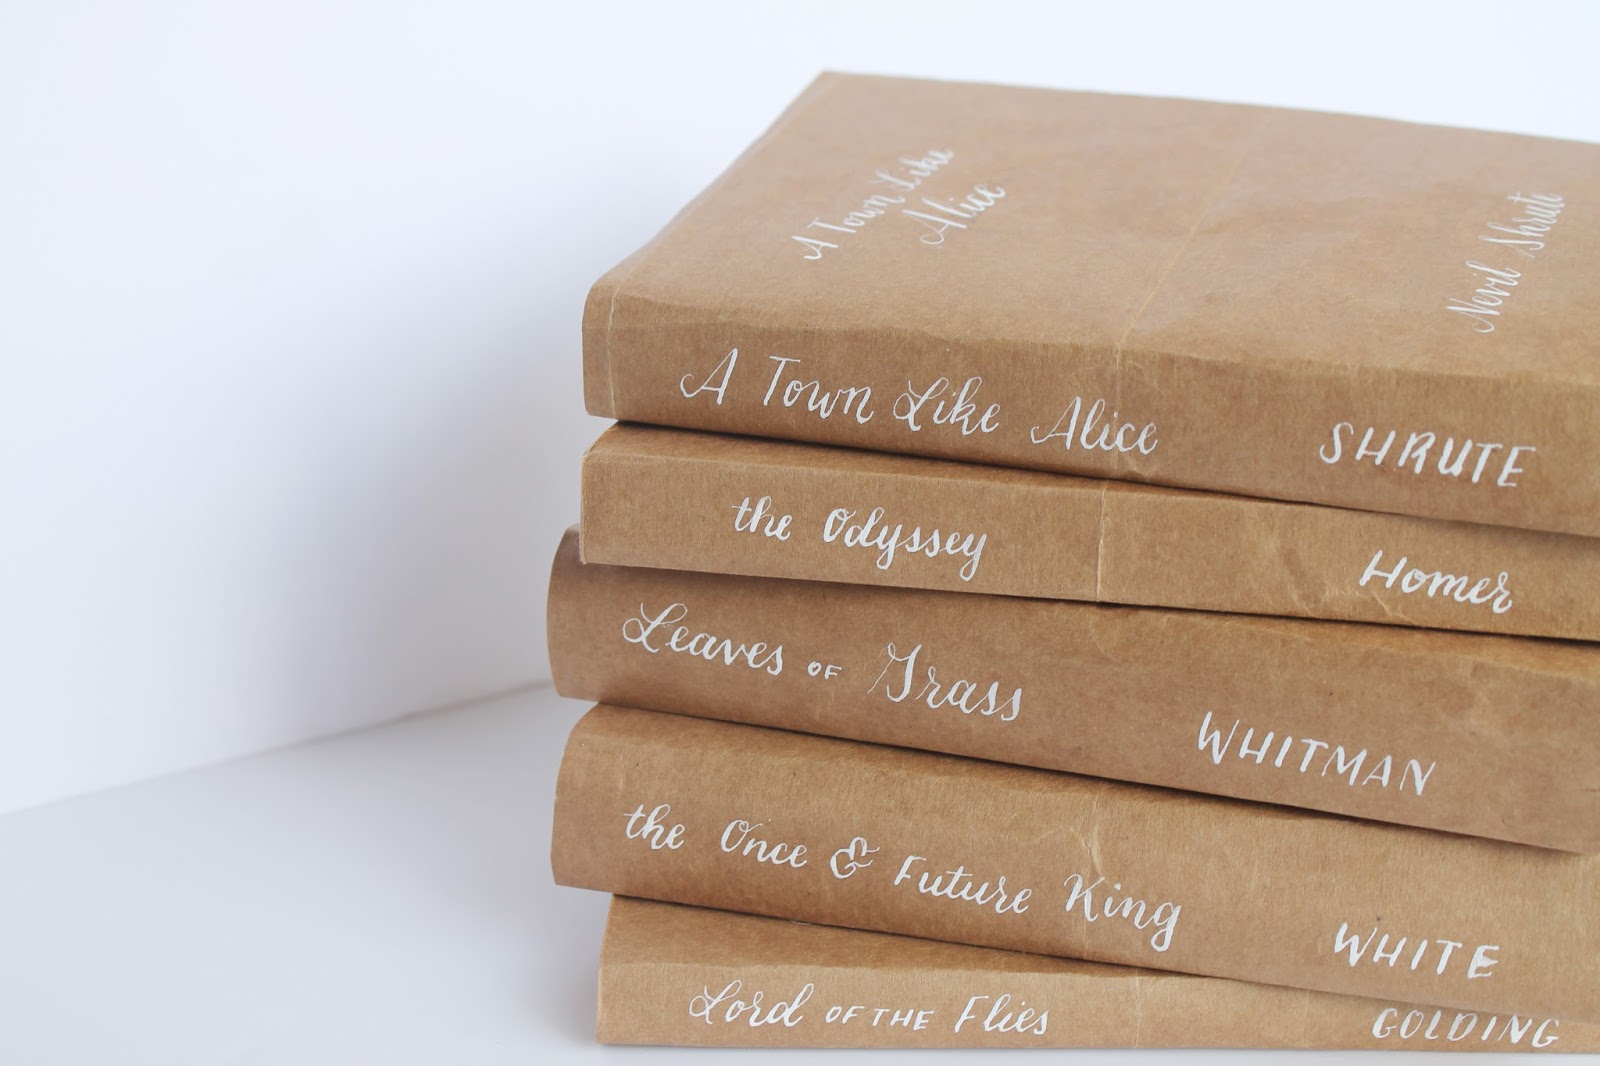 A Town Like
Alice
Nevil Shrute
A Town Like Alice SHRUTE
the Odyssey Homer
Leaves OF Grass WHITMAN
the Once & Future King WHITE
Lord OF THE Flies GOLDING